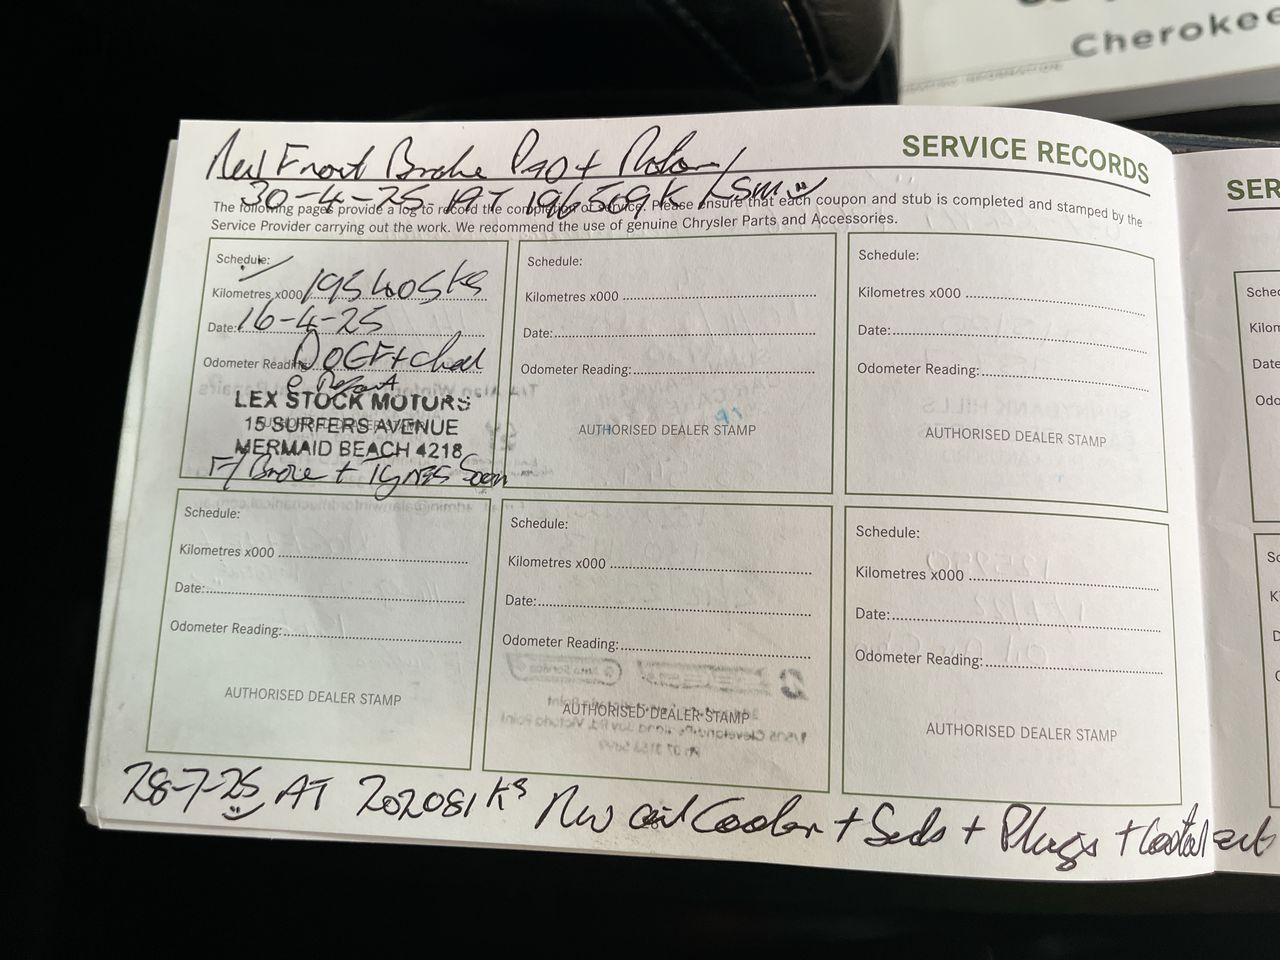 Cherokee
SERVICE RECORDS
New Front Brake Pad + Rotors
30-4-25 AT 196569K LSM
The following pages provide a log to record the completion of service. Please ensure that each coupon and stub is completed and stamped by the
Service Provider carrying out the work. We recommend the use of genuine Chrysler Parts and Accessories.
Schedule:
Kilometres x000 195605Ks
Date: 16-4-25
Odometer Reading:
LEX STOCK MOTORS
15 SURFERS AVENUE
MERMAID BEACH 4218
F/Brake + Tyres Soon
Schedule:
Kilometres x000
Date:
Odometer Reading:
AUTHORISED DEALER STAMP
Schedule:
Kilometres x000
Date:
Odometer Reading:
AUTHORISED DEALER STAMP
Schedule:
Kilometres x000
Date:
Odometer Reading:
AUTHORISED DEALER STAMP
Schedule:
Kilometres x000
Date:
Odometer Reading:
AUTHORISED DEALER STAMP
Schedule:
Kilometres x000
Date:
Odometer Reading:
AUTHORISED DEALER STAMP
28-7-25 AT 202081Ks New oil Cooler + Seals + Plugs +
SER